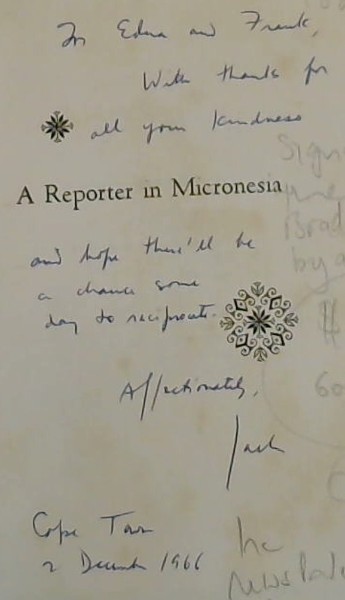 To Edna and Frank,
With thanks for
all your kindness
A Reporter in Micronesia
and hope there'll be
a chance some
day to reciprocate.
Affectionately,
Jack
Cape Town
2 December 1966
Sign
Brad
by a
$
60